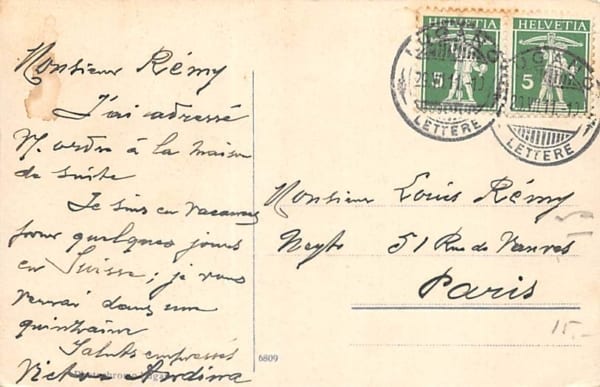 Monsieur Rémy
J'ai adressé
V. ordre à la maison
de suite
Je suis en vacances
pour quelques jours
en Suisse; je vous
verrai dans une
quinzaine
Saluts empressés
Victor
6809
HELVETIA
5
HELVETIA
5
LUGANO
LETTERE
LUGANO
LETTERE
Monsieur Louis Rémy
51 Rue de Vanves
Paris
15.-